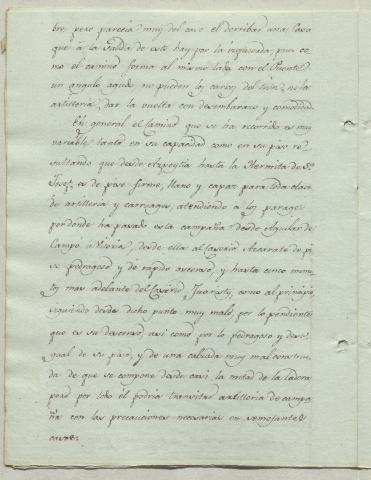 bre pero parecia muy del caso el derribar una Casa
que à la salida de este hay por la izquierda, pues co
mo el camino forma al mismo lado con el Puente
un angulo agudo, no pueden los carros del tren, ni la
artilleria, dar la vuelta con desembarazo y comodidad
En general el Camino que se ha recorrido es muy
variable tanto en su capacidad como en su piso re
sultando que desde Azpeytia hasta la Hermita de Sn.
Josef, es de piso firme, llano y capaz para toda clase
de artilleria y carruages, atendiendo a los parages
por donde ha pasado esta campaña desde Aguilar de
Campo à Vitoria, desde ella al Caserio Azcarate de pi
so pedregoso y de rápido ascenso, y hasta cinco minu
tos mas adelante del Caserio, Juaristi, como al principio
siguiendo desde dicho punto muy malo, por lo pendiente
que es su descenso, asi como por lo pedregoso y desi
gual de su piso, y de una calzada muy mal construi
da de que se compone desde casi la mitad de la ladera
pero por todo el podria transitar artilleria de campa
ña con las precauciones necesarias en semejantes
casos.